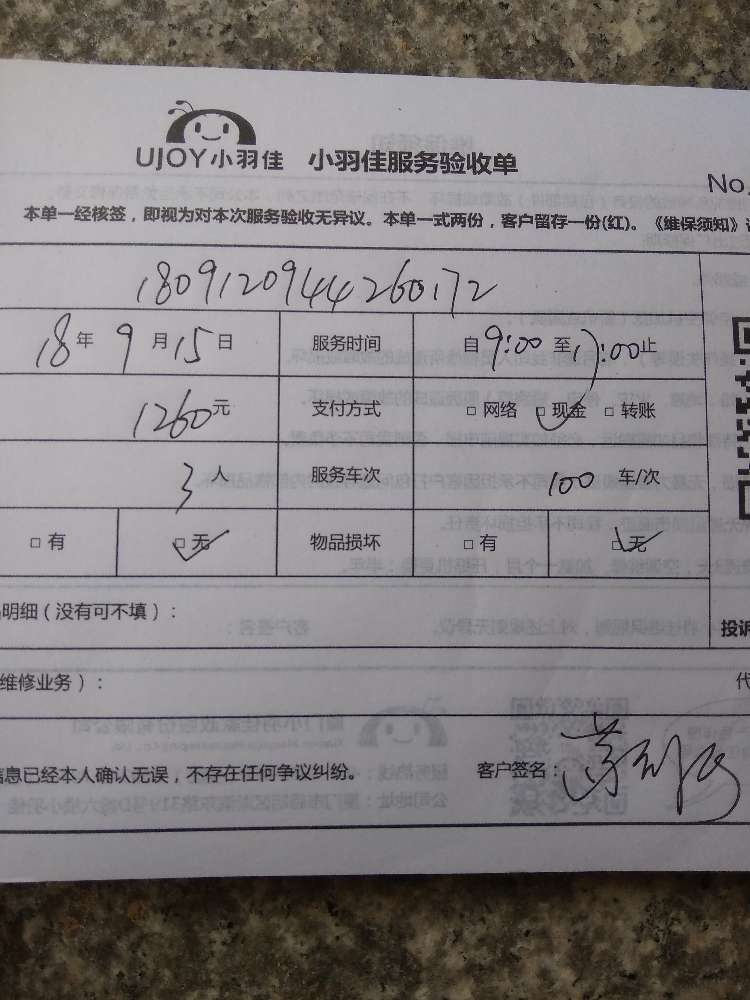 UJOY小羽佳 小羽佳服务验收单
No.
本单一经核签，即视为对本次服务验收无异议。本单一式两份，客户留存一份(红)。《维保须知》
1809120944260172
18年9月15日 服务时间 自9:00至17:00止
1260元 支付方式 □网络 □现金 □转账
3人 服务车次 100车/次
□有 □无 物品损坏 □有 □无
明细（没有可不填）：
投诉
维修业务）：
代
信息已经本人确认无误，不存在任何争议纠纷。 客户签名：